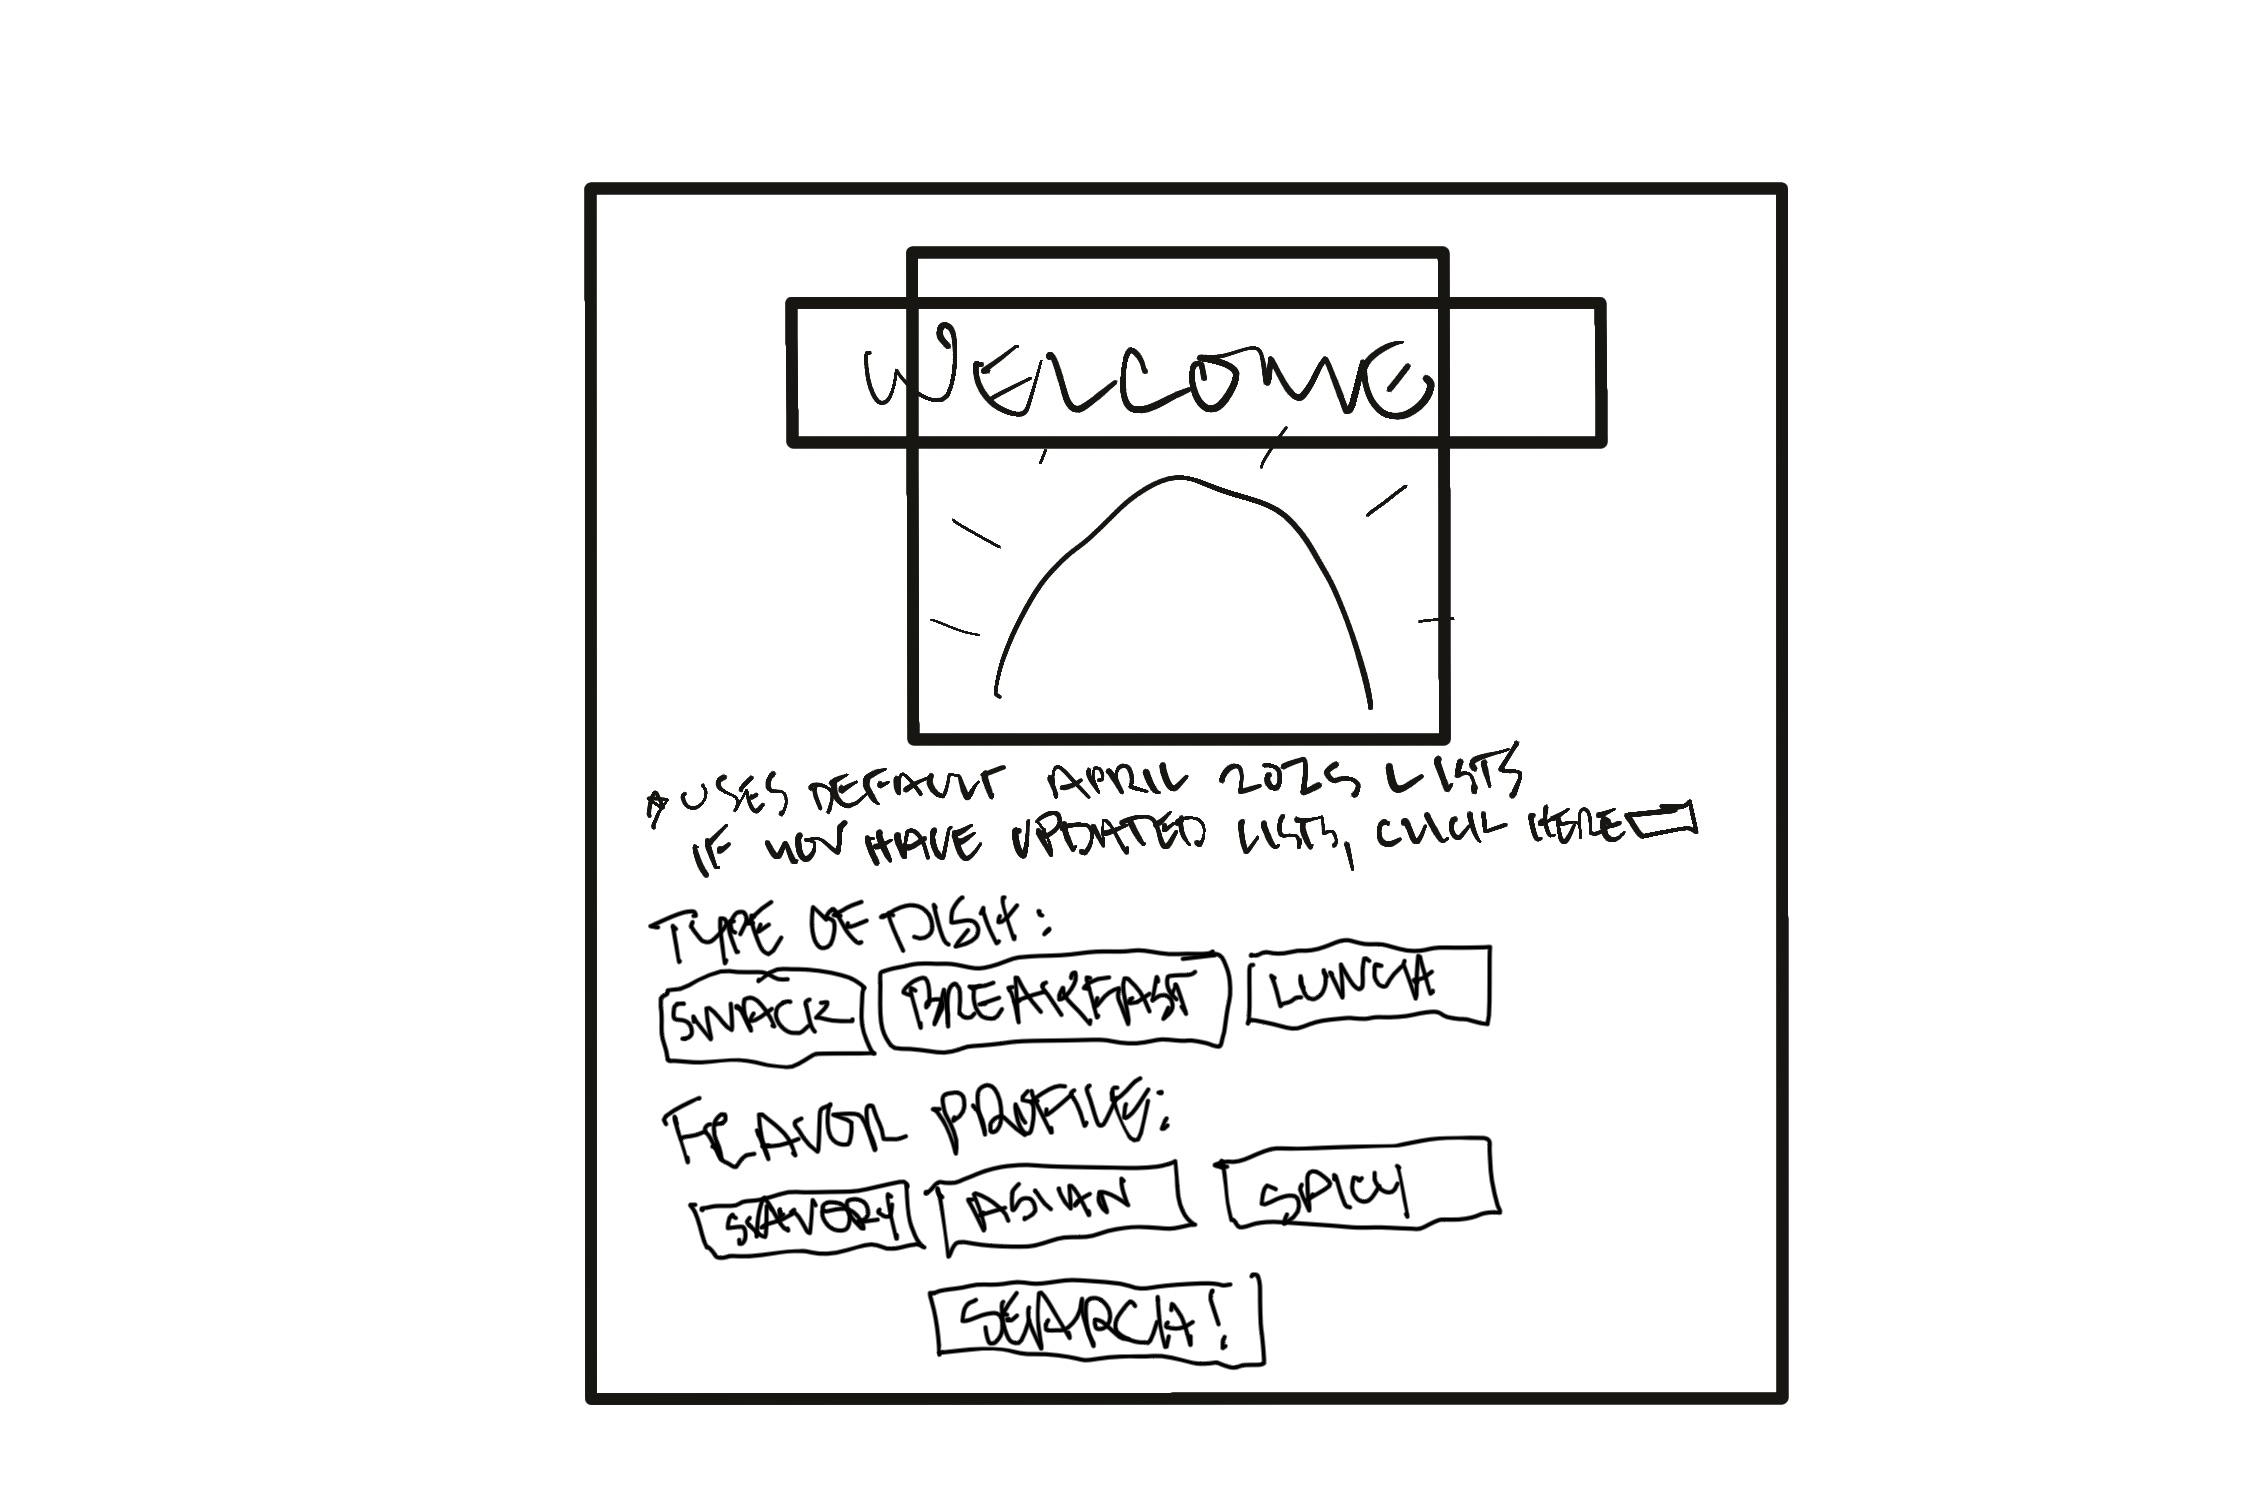 WELCOME
*USES DEFAULT APRIL 2025 LISTS
IF YOU HAVE UPDATED LISTS, CLICK HERE
TYPE OF DISH:
SNACK BREAKFAST LUNCH
FLAVOR PROFILE:
SAVORY ASIAN SPICY
SEARCH!